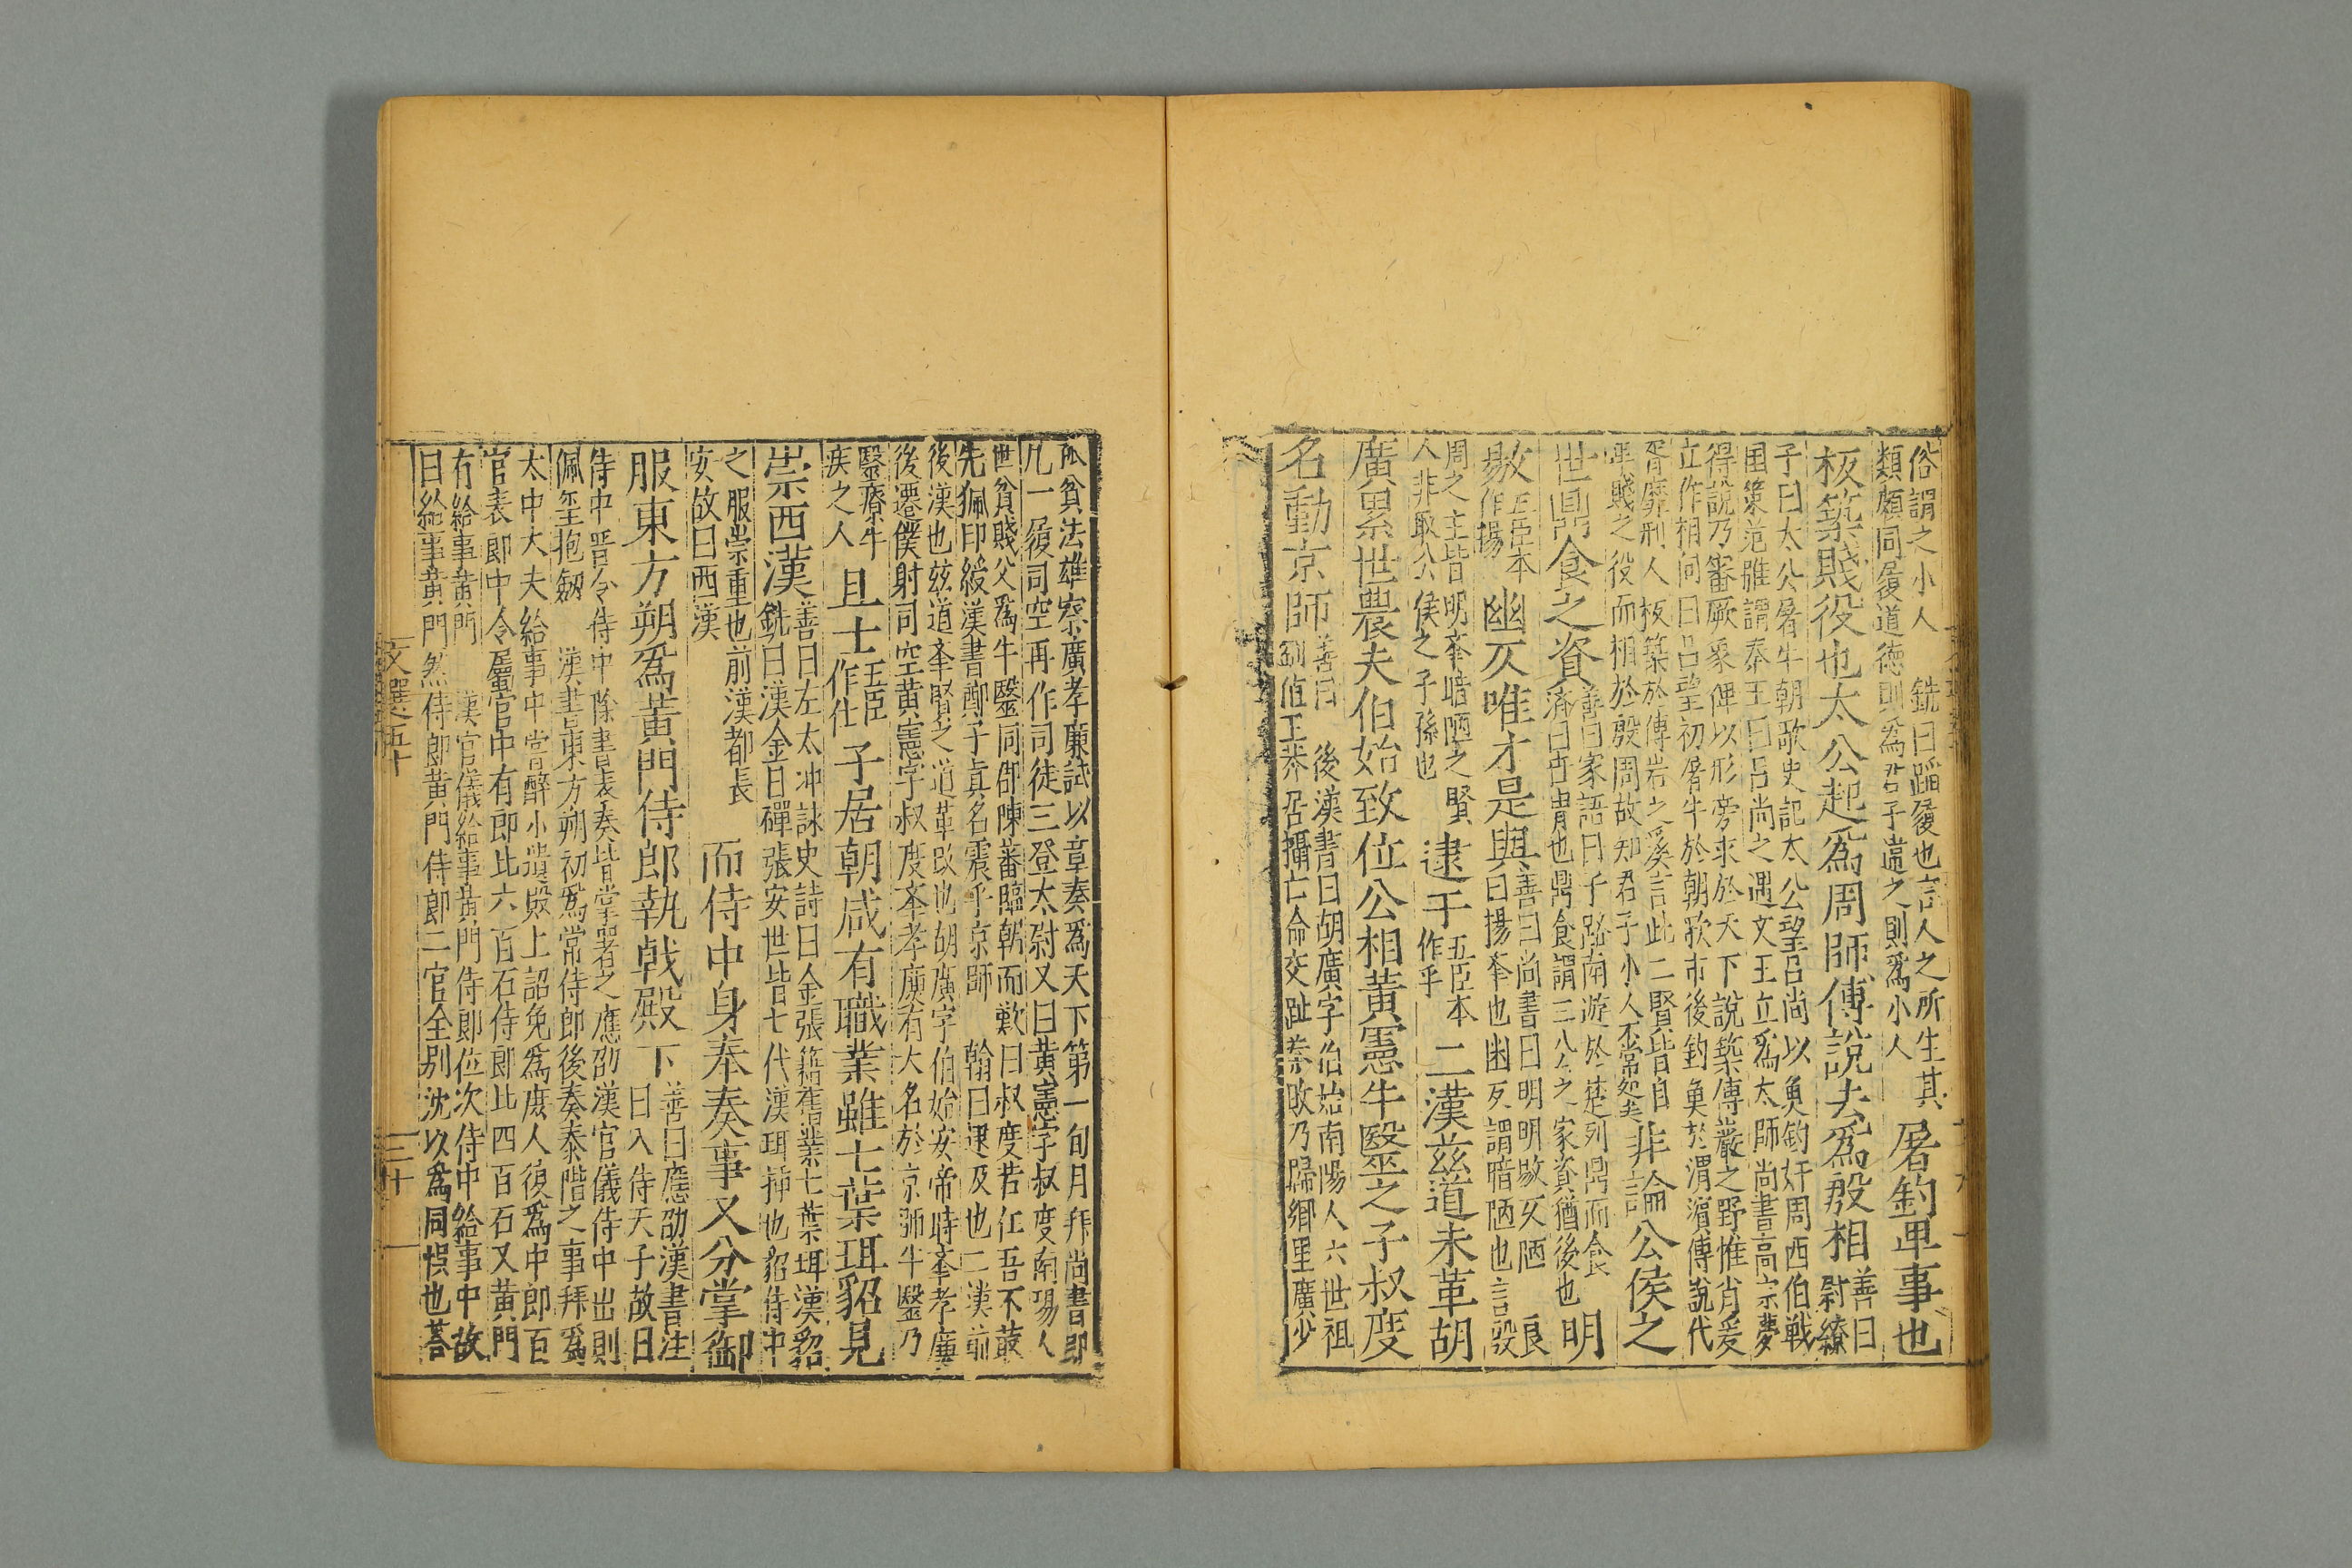 俗謂之小人　銑曰蹈履也言人之所生其
類頗同履道德則爲君子違之則爲小人
屠釣卑事也
板築賤役也太公起爲周師傅說去爲殷相
善曰
尉繚
子曰太公屠牛朝歌史記太公望呂尚以魚釣奸周西伯戰
國策范雎謂秦王曰呂尚之遇文王立爲太師尚書高宗夢
得說乃審厥象俾以形旁求於天下說築傅巖之野惟肖爰
立作相向曰呂望初屠牛於朝歌市後釣魚於渭濱傅說代
胥靡刑人板築於傅岩之溪言此二賢皆自
卑賤之役而相於殷周故知君子小人不常处矣
非論公侯之
世鼎食之資
善曰家語曰子路南遊於楚列鼎而食
濟曰世胄也鼎食謂三公之家資猶後也
明
敭
五臣本
作揚
幽仄唯才是與
善曰尚書曰明明敭仄陋　良
曰揚奉也幽仄謂暗陋也言殷
周之主皆明奉暗陋之賢
人非取公侯之子孫也
逮于
五臣本
作乎
二漢茲道未革胡
廣累世農夫伯始致位公相黃憲牛醫之子叔度
名動京師
善曰　後漢書曰胡廣字伯始南陽人六世祖
剛值王莽居攝亡命交趾莽敗乃歸鄉里廣少
孤貧法雄察廣孝廉試以章奏爲天下第一旬月拜尚書郎
凢一履司空再作司徒三登太尉又曰黃憲字叔度南陽人
世貧賤父爲牛醫同郡陳蕃臨朝而歎曰叔度若在吾不敢
先佩印綬漢書鄭子真名震乎京師　翰曰逮及也二漢前
後漢也茲道奉賢之道革改也胡廣字伯始安帝時奉孝廉
後遷僕射司空黃憲字叔度奉孝廉有大名於京師牛醫乃
醫療牛
疾之人
且士
五臣
作仕
子居朝咸有職業雖七葉珥貂見
崇西漢
善曰左太冲詠史詩曰金張籍舊業七葉珥漢貂
銑曰漢金日磾張安世皆七代漢珥揷也貂侍中
之服崇重也前漢都長
安故曰西漢
而侍中身奉奏事又分掌御
服東方朔爲黃門侍郎執戟殿下
善曰應劭漢書注
曰入侍天子故曰
侍中晋令侍中除書表奏皆掌署之應劭漢官儀侍中出則
佩璽抱劒　漢書東方朔初爲常侍郎後奏泰階之事拜爲
太中大夫給事中嘗醉小遺殿上詔免爲庶人復爲中郎百
官表郎中令屬官中有郎比六百石侍郎比四百石又黃門
有給事黃門　漢官儀給事黃門侍郎位次侍中給事中故
曰給事黃門然侍郎黃門侍郎二官全別沈以爲同悞也荅
文選卷五十
三十